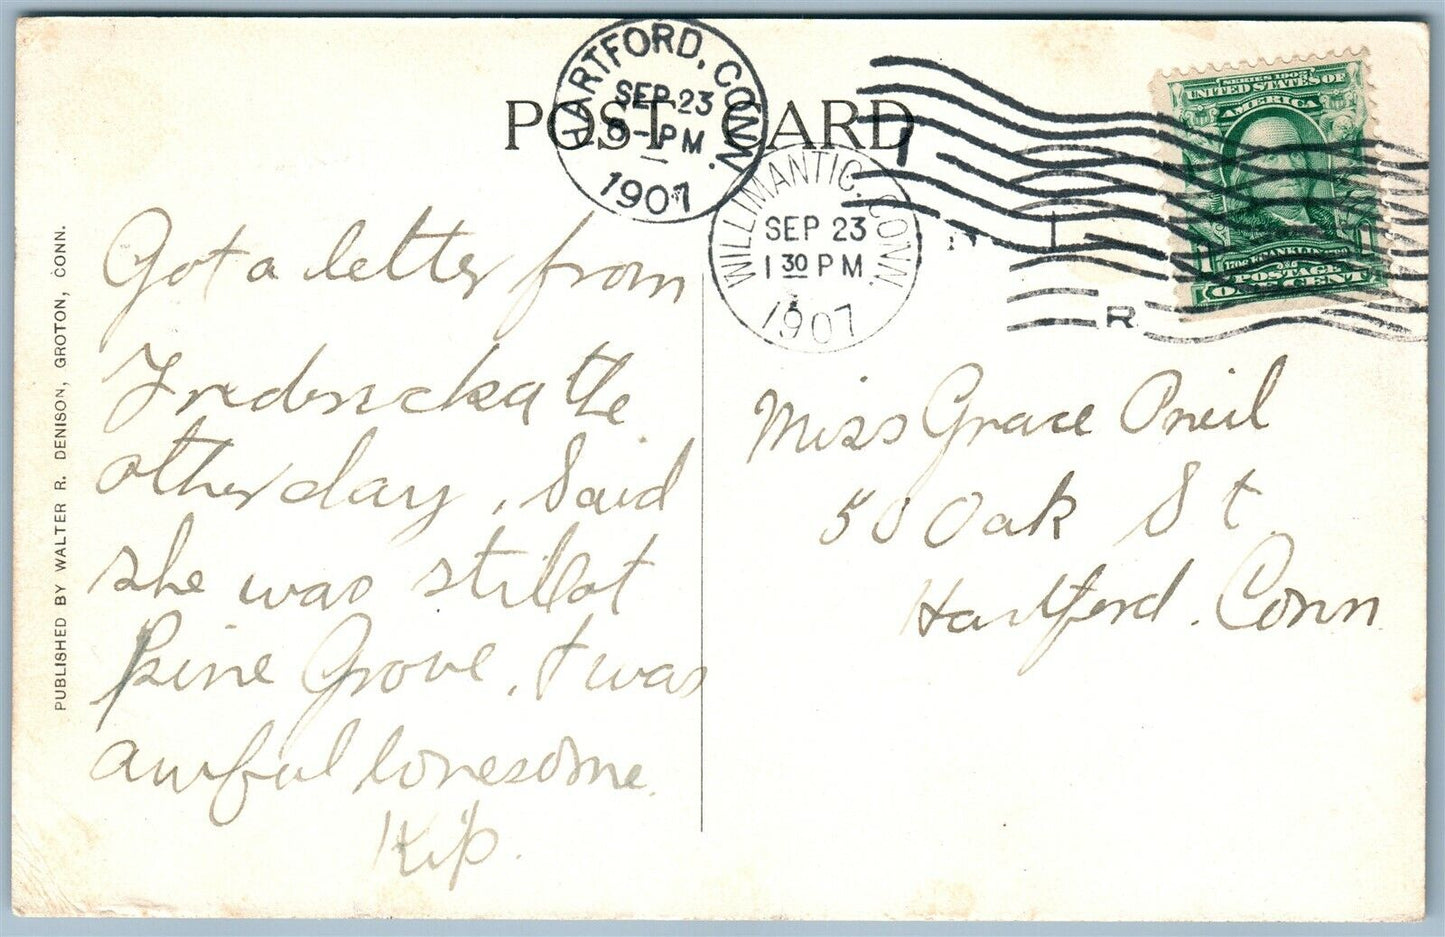 POST CARD
HARTFORD, CONN.
SEP 23
-PM
1907
WILLIMANTIC, CONN.
SEP 23
1 30 PM
1907
R
SERIES 1902
UNITED STATES OF
AMERICA
FRANKLIN
POSTAGE
ONE CENT
PUBLISHED BY WALTER R. DENISON, GROTON, CONN.
Got a letter from
Fredericka the
other day, Said
she was still at
Pine Grove, & was
awful lonesome.
Kip.
Miss Grace Oneil
50 Oak St
Hartford. Conn.